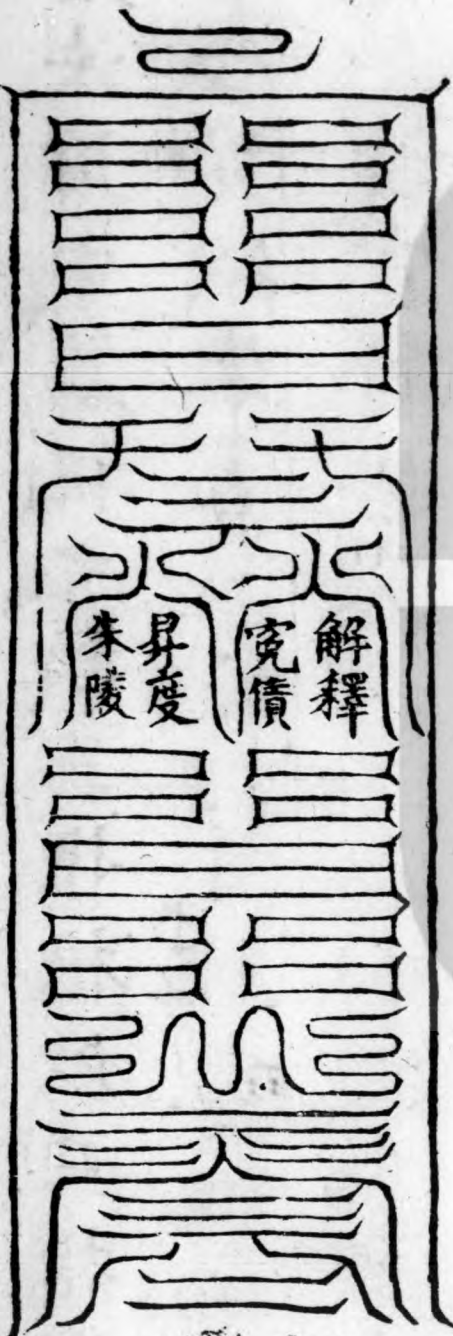 解釋
寃債
昇度
朱陵